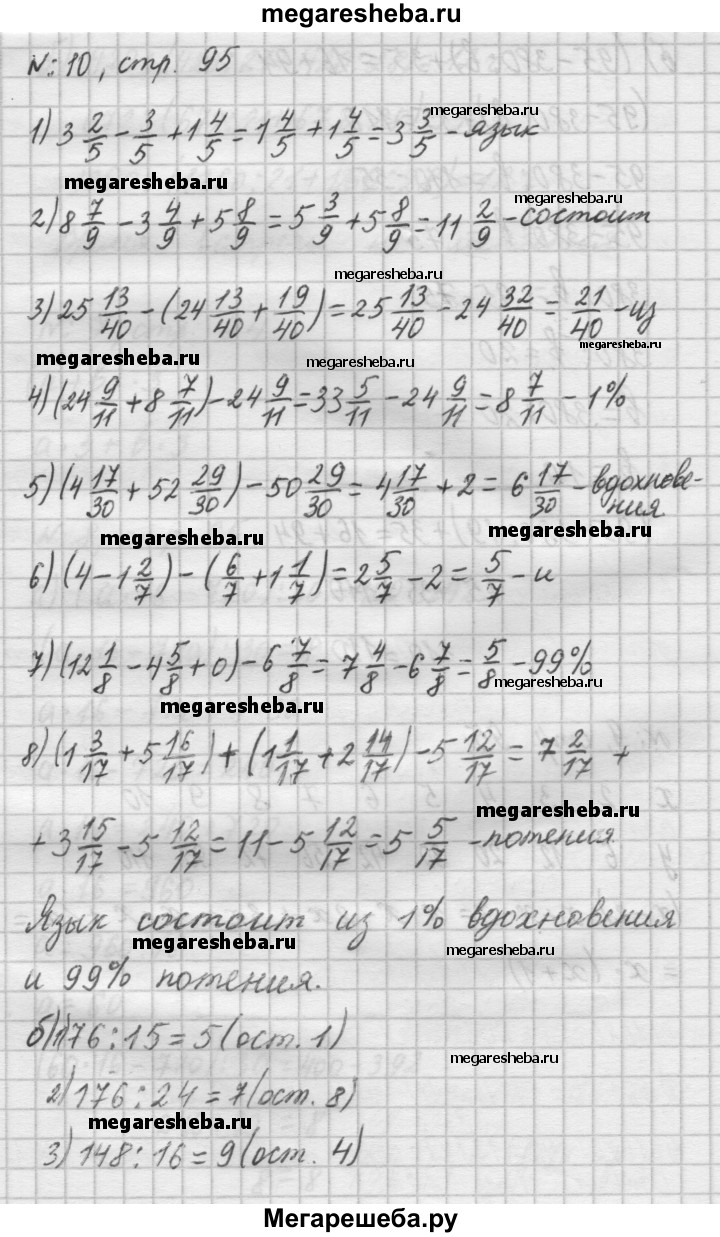 megaresheba.ru
№ 10, стр. 95
1) 3 2/5 - 3/5 + 1 4/5 = 1 4/5 + 1 4/5 = 3 3/5 - язык
megaresheba.ru
megaresheba.ru
2) 8 7/9 - 3 4/9 + 5 8/9 = 5 3/9 + 5 8/9 = 11 2/9 - состоит
megaresheba.ru
megaresheba.ru
3) 25 13/40 - (24 13/40 + 19/40) = 25 13/40 - 24 32/40 = 21/40 - из
megaresheba.ru
megaresheba.ru
megaresheba.ru
4) (24 9/11 + 8 7/11) - 24 9/11 = 33 5/11 - 24 9/11 = 8 7/11 - 1%
5) (4 17/30 + 52 29/30) - 50 29/30 = 4 17/30 + 2 = 6 17/30 - вдохнове-
ния.
megaresheba.ru
megaresheba.ru
6) (4 - 1 2/7) - (6/7 + 1 1/7) = 2 5/7 - 2 = 5/7 - и
7) (12 1/8 - 4 5/8 + 0) - 6 7/8 = 7 4/8 - 6 7/8 = 5/8 - 99%
megaresheba.ru
megaresheba.ru
8) (1 3/17 + 5 16/17) + (1 1/17 + 2 14/17) - 5 12/17 = 7 2/17 +
megaresheba.ru
+ 3 15/17 - 5 12/17 = 11 - 5 12/17 = 5 5/17 - потения
Язык состоит из 1% вдохновения
megaresheba.ru
megaresheba.ru
и 99% потения.
б) 1) 76 : 15 = 5 (ост. 1)
megaresheba.ru
2) 176 : 24 = 7 (ост. 8)
megaresheba.ru
3) 148 : 16 = 9 (ост. 4)
Мегарешеба.ру